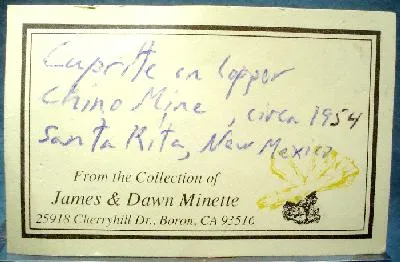 Cuprite on Copper
Chino Mine, circa 1954
Santa Rita, New Mexico
From the Collection of
James & Dawn Minette
25918 Cherryhill Dr., Boron, CA 93516